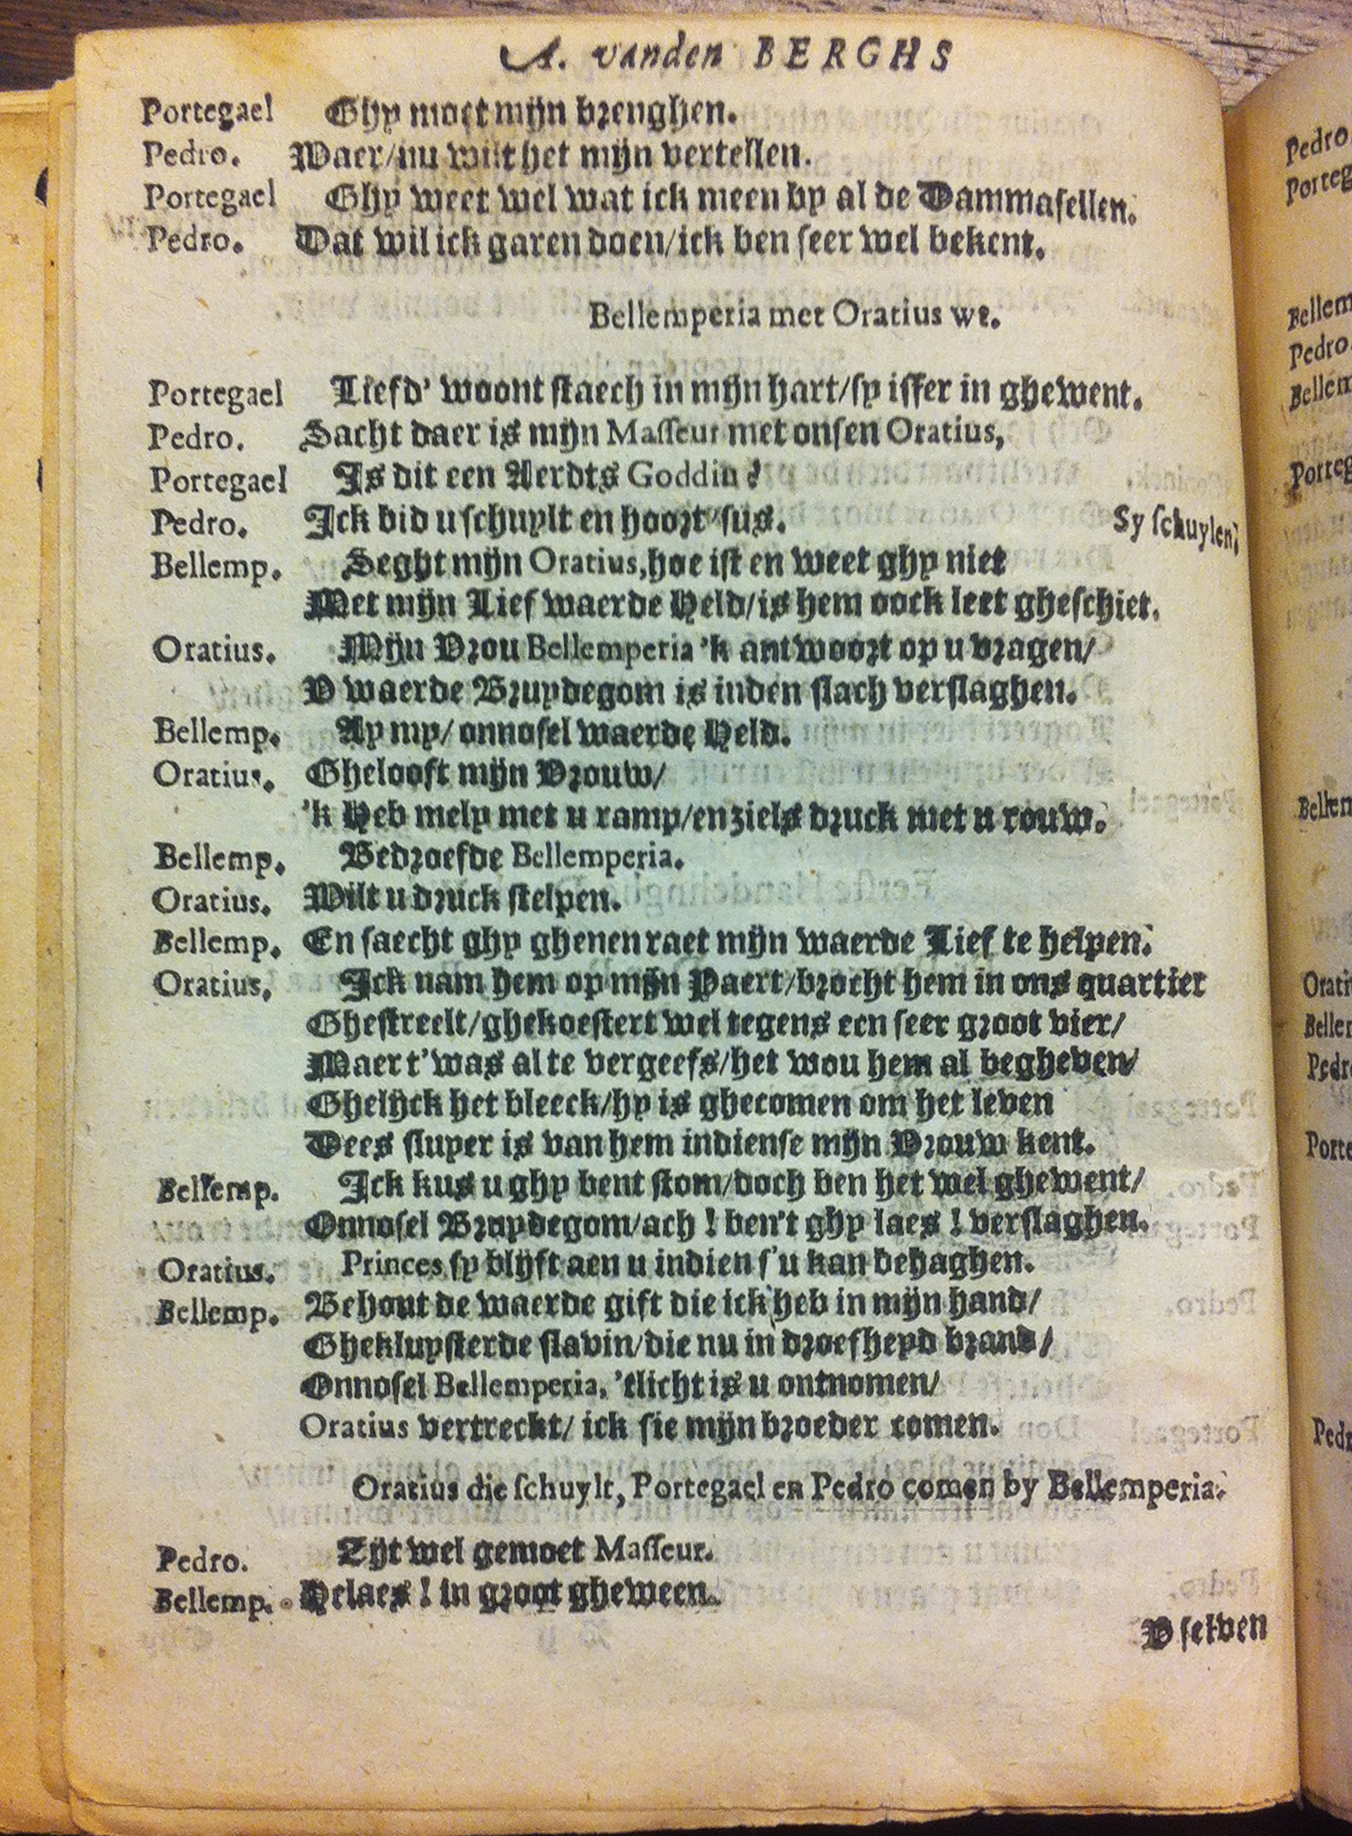 A. vanden BERGHS
Portegael Ghy moet mijn brenghen.
Pedro. Waer/nu wilt het mijn vertellen.
Portegael Ghy weet wel wat ick meen by al de Dammasellen.
Pedro. Dat wil ick garen doen/ick ben seer wel bekent.
Bellemperia met Oratius wt.
Portegael Liefd' woont staech in mijn hart/sy isser in ghewent.
Pedro. Sacht daer is mijn Masseur met onsen Oratius,
Portegael Is dit een Aerdts Goddin?
Pedro. Ick bid u schuylt en hoort 'sus. Sy schuylen.
Bellemp. Seght mijn Oratius, hoe ist en weet ghy niet
Met mijn Lief waerde Held/is hem oock leet gheschiet.
Oratius. Mijn Vrou Bellemperia 'k antwoort op u vragen/
V waerde Bruydegom is inden slach verslaghen.
Bellemp. Ay my/onnosel waerde Held.
Oratius. Ghelooft mijn Vrouw/
'k Heb mely met u ramp/en ziels druck met u rouw.
Bellemp. Bedroefde Bellemperia.
Oratius. Wilt u druck stelpen.
Bellemp. En saecht ghy ghenen raet mijn waerde Lief te helpen.
Oratius. Ick nam hem op mijn Paert/brocht hem in ons quartier
Ghestreelt/ghekoestert wel tegens een seer groot vier/
Maer t'was al te vergeefs/het wou hem al begheven/
Ghelijck het bleeck/hy is ghecomen om het leven
Dees sluyer is van hem indiense mijn Vrouw kent.
Bellemp. Ick kus u ghy bent stom/doch ben het wel ghewent/
Onnosel Bruydegom/ach! ben't ghy laes! verslaghen.
Oratius. Princes sy blijft aen u indien s'u kan behaghen.
Bellemp. Behout de waerde gift die ick heb in mijn hand/
Gheklupsterde slavin/die nu in droefheyd brand/
Onnosel Bellemperia, 'tlicht is u ontnomen/
Oratius vertreckt/ick sie mijn broeder comen.
Oratius die schuylt, Portegael en Pedro comen by Bellemperia.
Pedro. Zijt wel gemoet Masseur.
Bellemp. Helaes! in groot gheween.
V selven
Pedro
Porteg
Bellem
Pedro.
Bellem
Porteg
Bellem
Orati
Beller
Pedro
Porte
Pedr